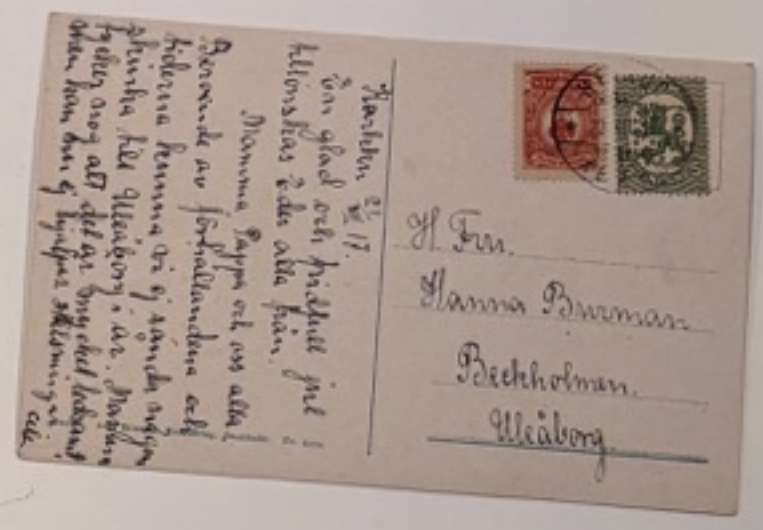 Karhku 21/XII 17.
En glad och fridfull jul
tillönskas Eder alla från
Mamma Pappa och oss alla
Beroende av förhållandena och
tiderna kunna vi ej sända någon
skinka till Uleåborg i år. Mamma
tycker nog att det är mycket
men han kan ej hjälpas
H. Fru.
Hanna Burman
Beckholmen.
Uleåborg.